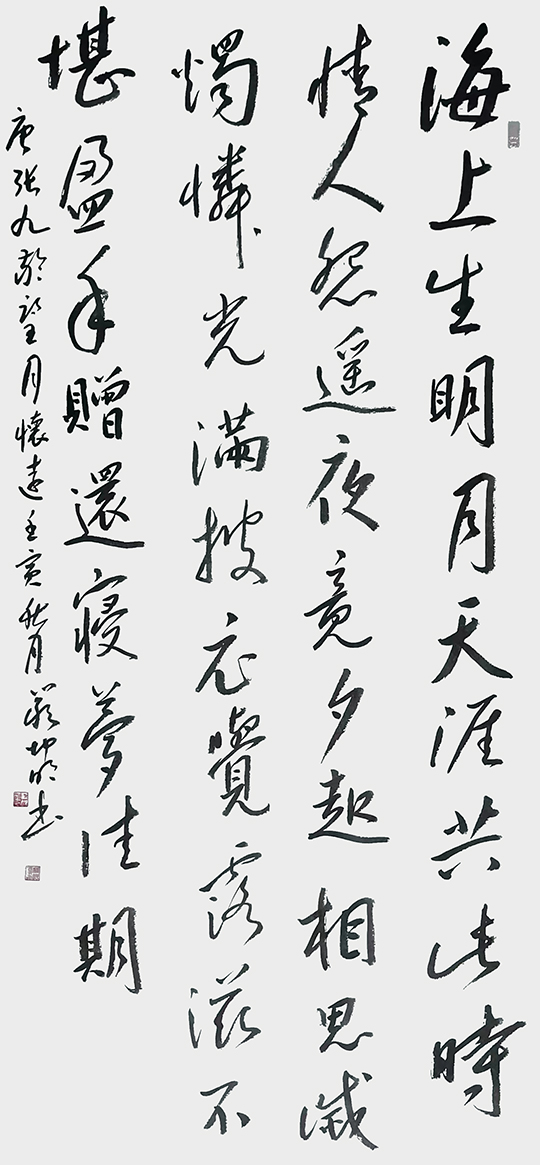 海上生明月天涯共此時
情人怨遥夜竟夕起相思滅
燭憐光滿披衣覺露滋不
堪盈手贈還寝夢佳期
唐張九齡望月懷遠壬寅秋月坤明书